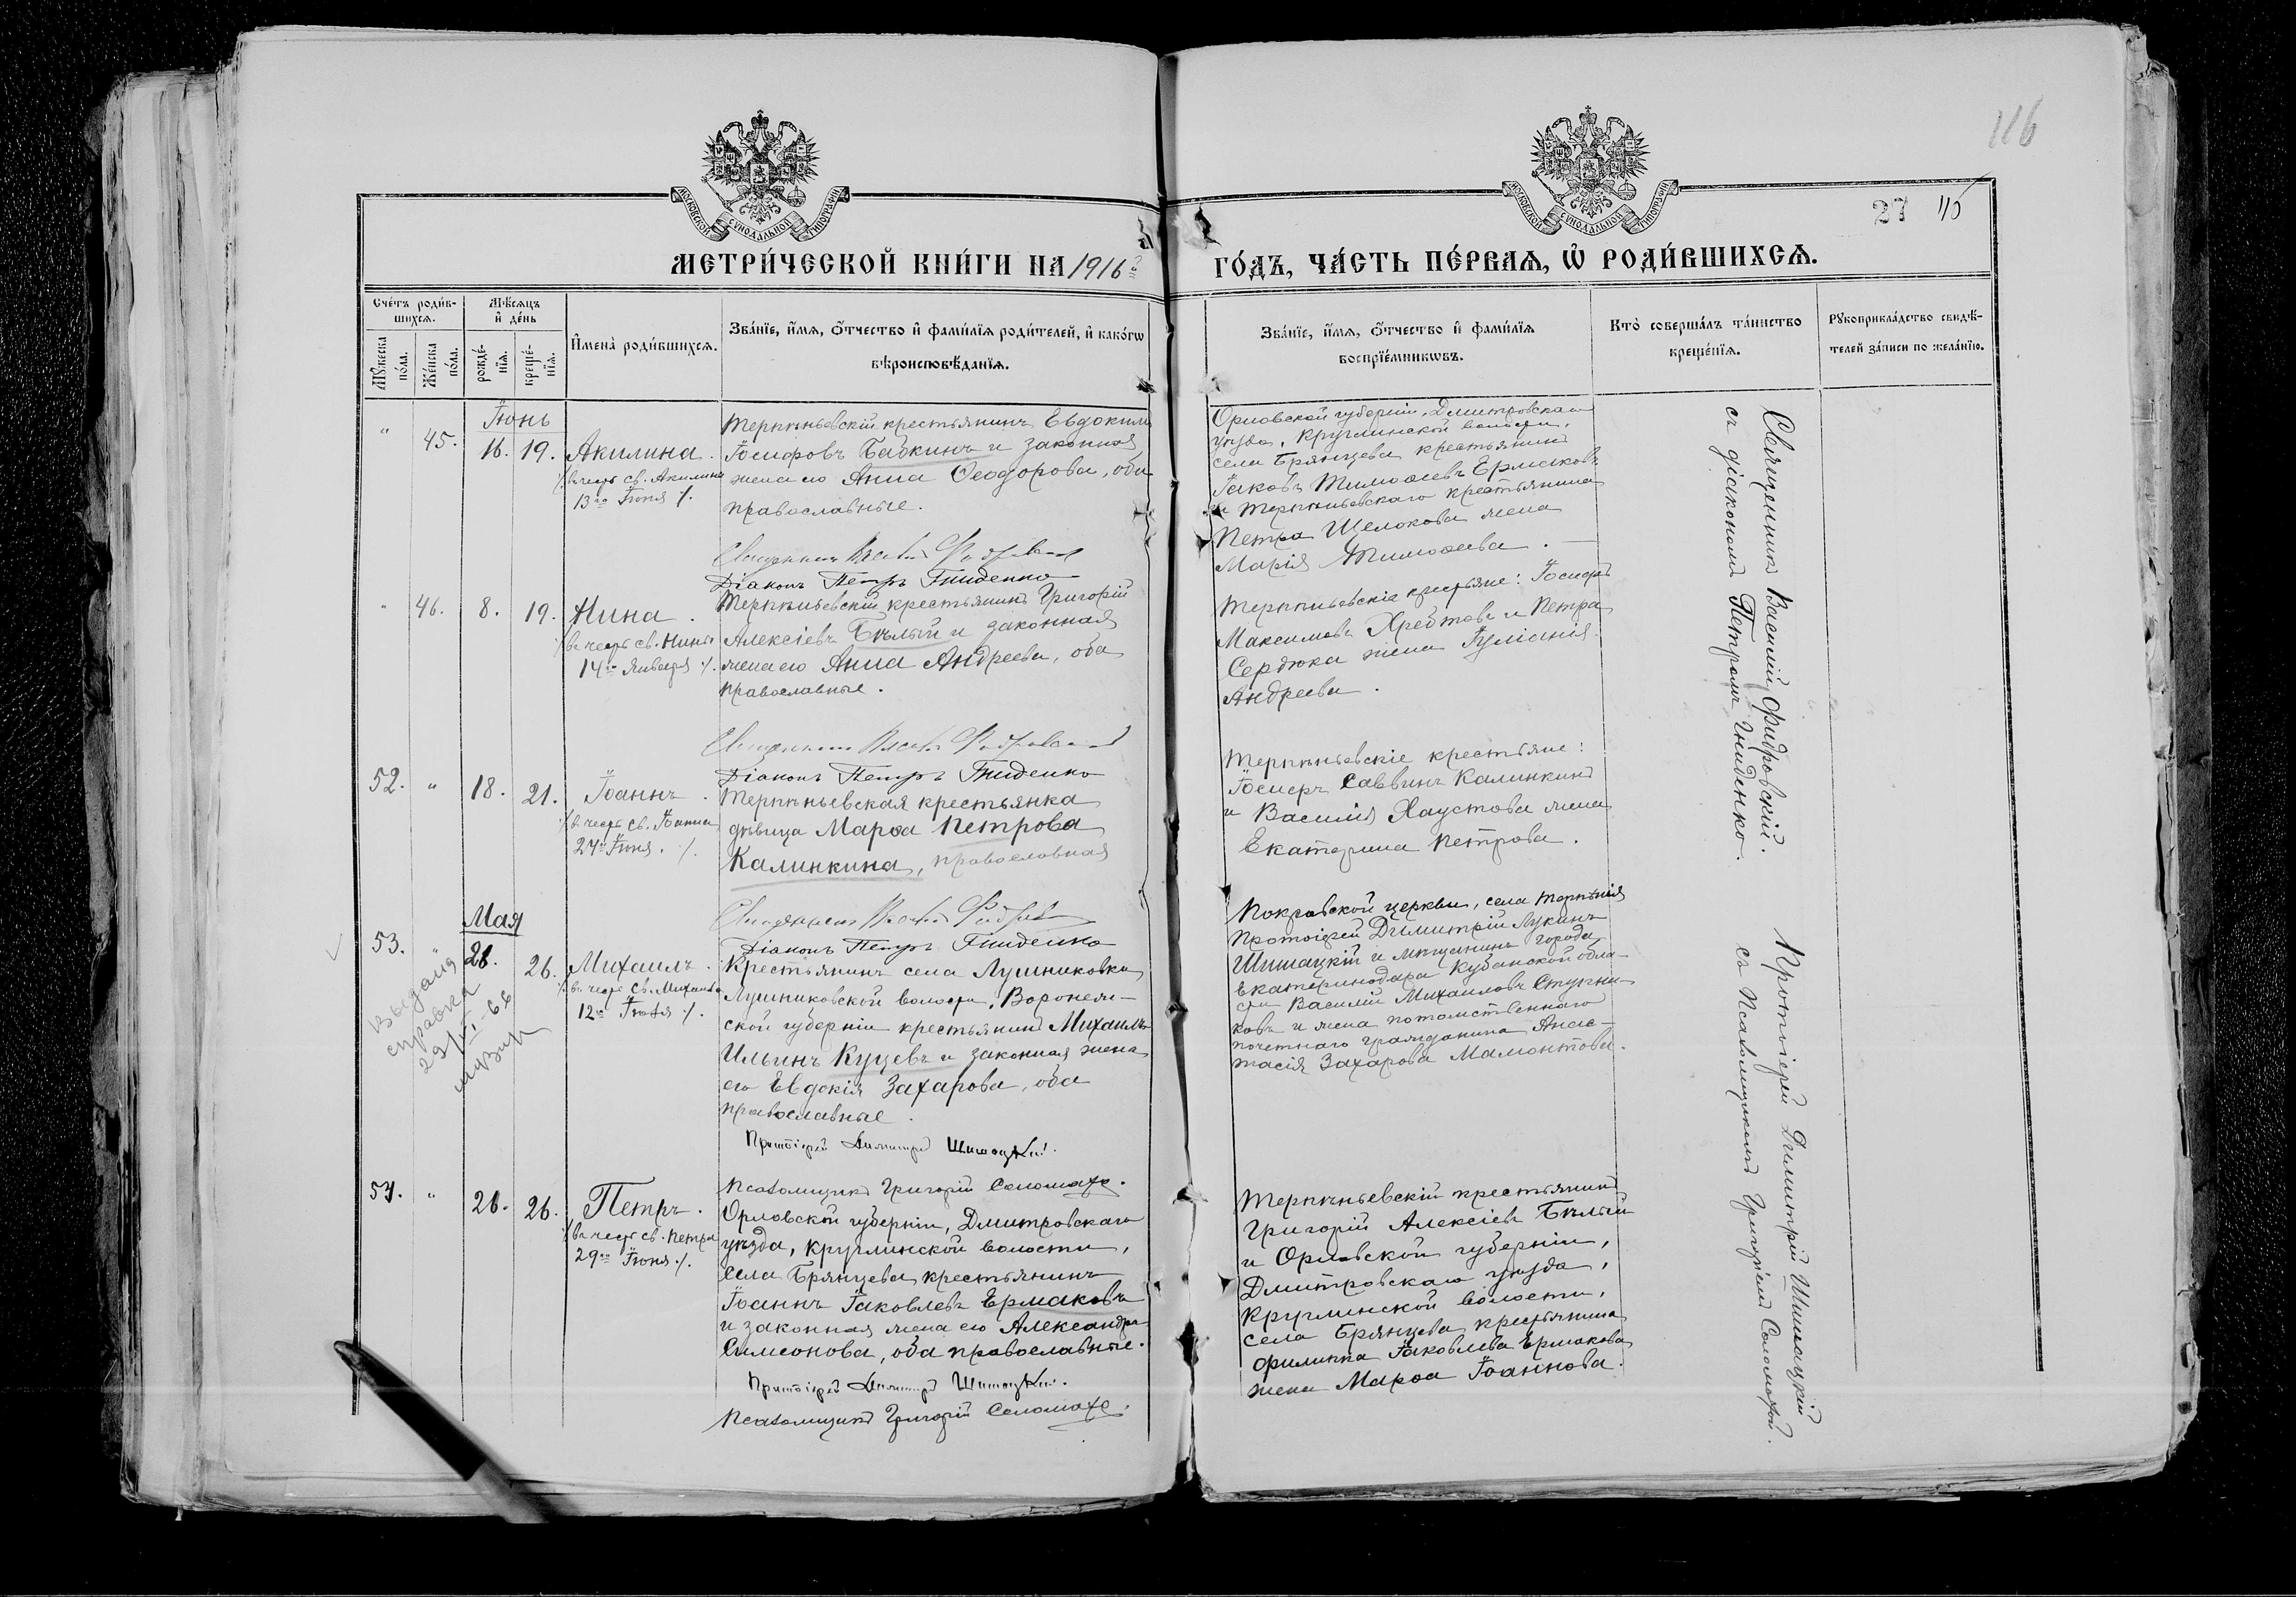 116
27 115
МОСКОВСКОЙ СУНОДАЛЬНОЙ ТИПОГРАФІИ
МОСКОВСКОЙ СУНОДАЛЬНОЙ ТИПОГРАФІИ
МЕТРИ́ЧЕСКОЙ КНИ́ГИ НА 1916 ГО́ДЪ, ЧА́СТЬ ПЕ́РВАЯ, Ѡ҆ РОДИ́ВШИХСЯ.
Сче́тъ роди́в-
шихся.
Мꙋ́жеска по́ла.
Же́нска по́ла.
Мѣ́сяцъ
и҆ де́нь
рожде́-
нїя.
креще́-
нїя.
И҆мена̀ роди́вшихся.
Зва́нїе, и҆́мя, ѻ҆́тчество и҆ фами́лїя роди́телей, и҆ како́гѡ
вѣроисповѣ́данїя.
Зва́нїе, и҆́мя, ѻ҆́тчество и҆ фами́лїя
воспрїе́мникѡвъ.
Кто̀ соверша́лъ та́инство
креще́нїя.
Рꙋкоприкла́дство свидѣ́-
телей за́писи по жела́нїю.
Іюнь
" 45. 16. 19. Акилина.
въ честь св. Акилины
13го Іюня
Терпѣньевскій крестьянинъ Евдокимъ
Іосифовъ Бабкинъ и законная
жена его Анна Ѳеодорова, оба
православные.
Священникъ
Діаконъ Петръ Гниденко
Орловской губерніи, Дмитровскаго
уѣзда, Круглинской волости,
села Брянцева крестьянинъ
Іаковъ Тимоѳеевъ Ермаковъ
и Терпѣньевскаго крестьянина
Петра Щелокова жена
Марія Тимоѳеева.
Священникъ Василій Фидровскій
съ діакономъ Петромъ Гниденко.
" 46. 8. 19. Нина.
въ честь св. Нины
14го Января
Терпѣньевскій крестьянинъ Григорій
Алексіевъ Бѣлый и законная
жена его Анна Андреева, оба
православные.
Священникъ
Діаконъ Петръ Гниденко
Терпѣньевскіе крестьяне: Іосифъ
Максимовъ Хребтовъ и Петра
Сердюка жена Іуліанія
Андреева.
52. " 18. 21. Іоаннъ.
въ честь св. Іоанна
24го Іюня.
Терпѣньевская крестьянка
дѣвица Марѳа Петрова
Калинкина, православная
Священникъ
Діаконъ Петръ Гниденко
Терпѣньевскіе крестьяне:
Іосифъ Саввинъ Калинкинъ
и Василія Хаустова жена
Екатерина Петрова.
Мая
53. " 28. 26. Михаилъ.
въ честь св. Михаила
12го Іюля
справка
Крестьянинъ села Лушниковки
Лушниковской волости, Воронеж-
ской губерніи крестьянинъ Михаилъ
Ильинъ Куцевъ и законная жена
его Евдокія Захарова, оба
православные.
Протоіерей Димитрій Шишацкій.
Псаломщикъ Григорій Соломаха.
Покровской церкви, села Терпѣнія
Протоіерей Димитрій Лукинъ
Шишацкій и мѣщанинъ города
Екатеринодара Кубанской обла-
сти Василій Михаиловъ Ступни-
ковъ и жена потомственнаго
почетнаго гражданина Анас-
тасія Захарова Мамонтова.
Протоіерей Димитрій Шишацкій
съ Псаломщикомъ Григоріемъ Соломахой.
54. " 20. 26. Петръ.
въ честь св. Петра
29го Іюня
Орловской губерніи, Дмитровскаго
уѣзда, Круглинской волости,
села Брянцева крестьянинъ
Іоаннъ Іаковлевъ Ермаковъ
и законная жена его Александра
Симеонова, оба православные.
Протоіерей Димитрій Шишацкій.
Псаломщикъ Григорій Соломаха.
Терпѣньевскій крестьянинъ
Григорій Алексіевъ Бѣлый
и Орловской губерніи,
Дмитровскаго уѣзда,
Круглинской волости,
села Брянцева крестьянина
Филиппа Іаковлева Ермакова
жена Марѳа Іоаннова.